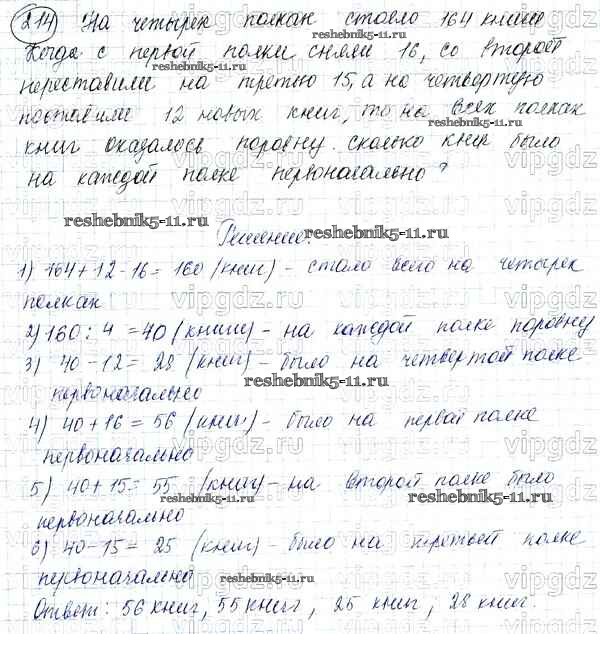 214) На четырех полках стояло 164 книги
Когда с первой полки сняли 16, со второй
переставили на третью 15, а на четвертую
поставили 12 новых книг, то на всех полках
книг оказалось поровну. сколько книг было
на каждой полке первоначально?
Решение:
1) 164 + 12 - 16 = 160 (книг) - стало всего на четырех
полках
2) 160 : 4 = 40 (книги) - на каждой полке поровну
3) 40 - 12 = 28 (книг) - было на четвертой полке
первоначально
4) 40 + 16 = 56 (книг) - было на первой полке
первоначально
5) 40 + 15 = 55 (книг) - на второй полке было
первоначально
6) 40 - 15 = 25 (книг) - было на третьей полке
первоначально
Ответ: 56 книг, 55 книг, 25 книг, 28 книг.
reshebnik5-11.ru
reshebnik5-11.ru
reshebnik5-11.ru
reshebnik5-11.ru
reshebnik5-11.ru
reshebnik5-11.ru
vipgdz.ru